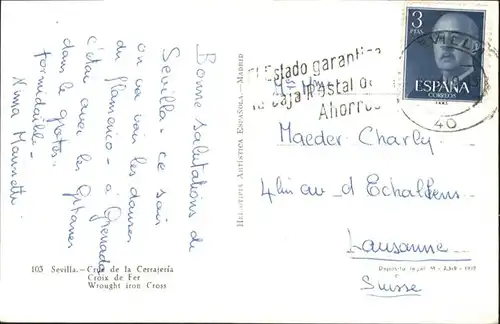 Bonne salutations de
Sevilla - ce soir
on va voir les danses
du flamenco - à Grenada
c'était avec les Gitanes
dans le grotes.
formidable -
103 Sevilla.—Cruz de la Cerrajería
Croix de Fer
Wrought iron Cross
HELIOTIPIA ARTÍSTICA ESPAÑOLA.—MADRID
El Estado garantiza
la Caja Postal de
Ahorros
3
PTAS
ESPAÑA
CORREOS
SEVILLA
40
Maeder Charly
4 bis av d'Echallens
Lausanne
Suisse